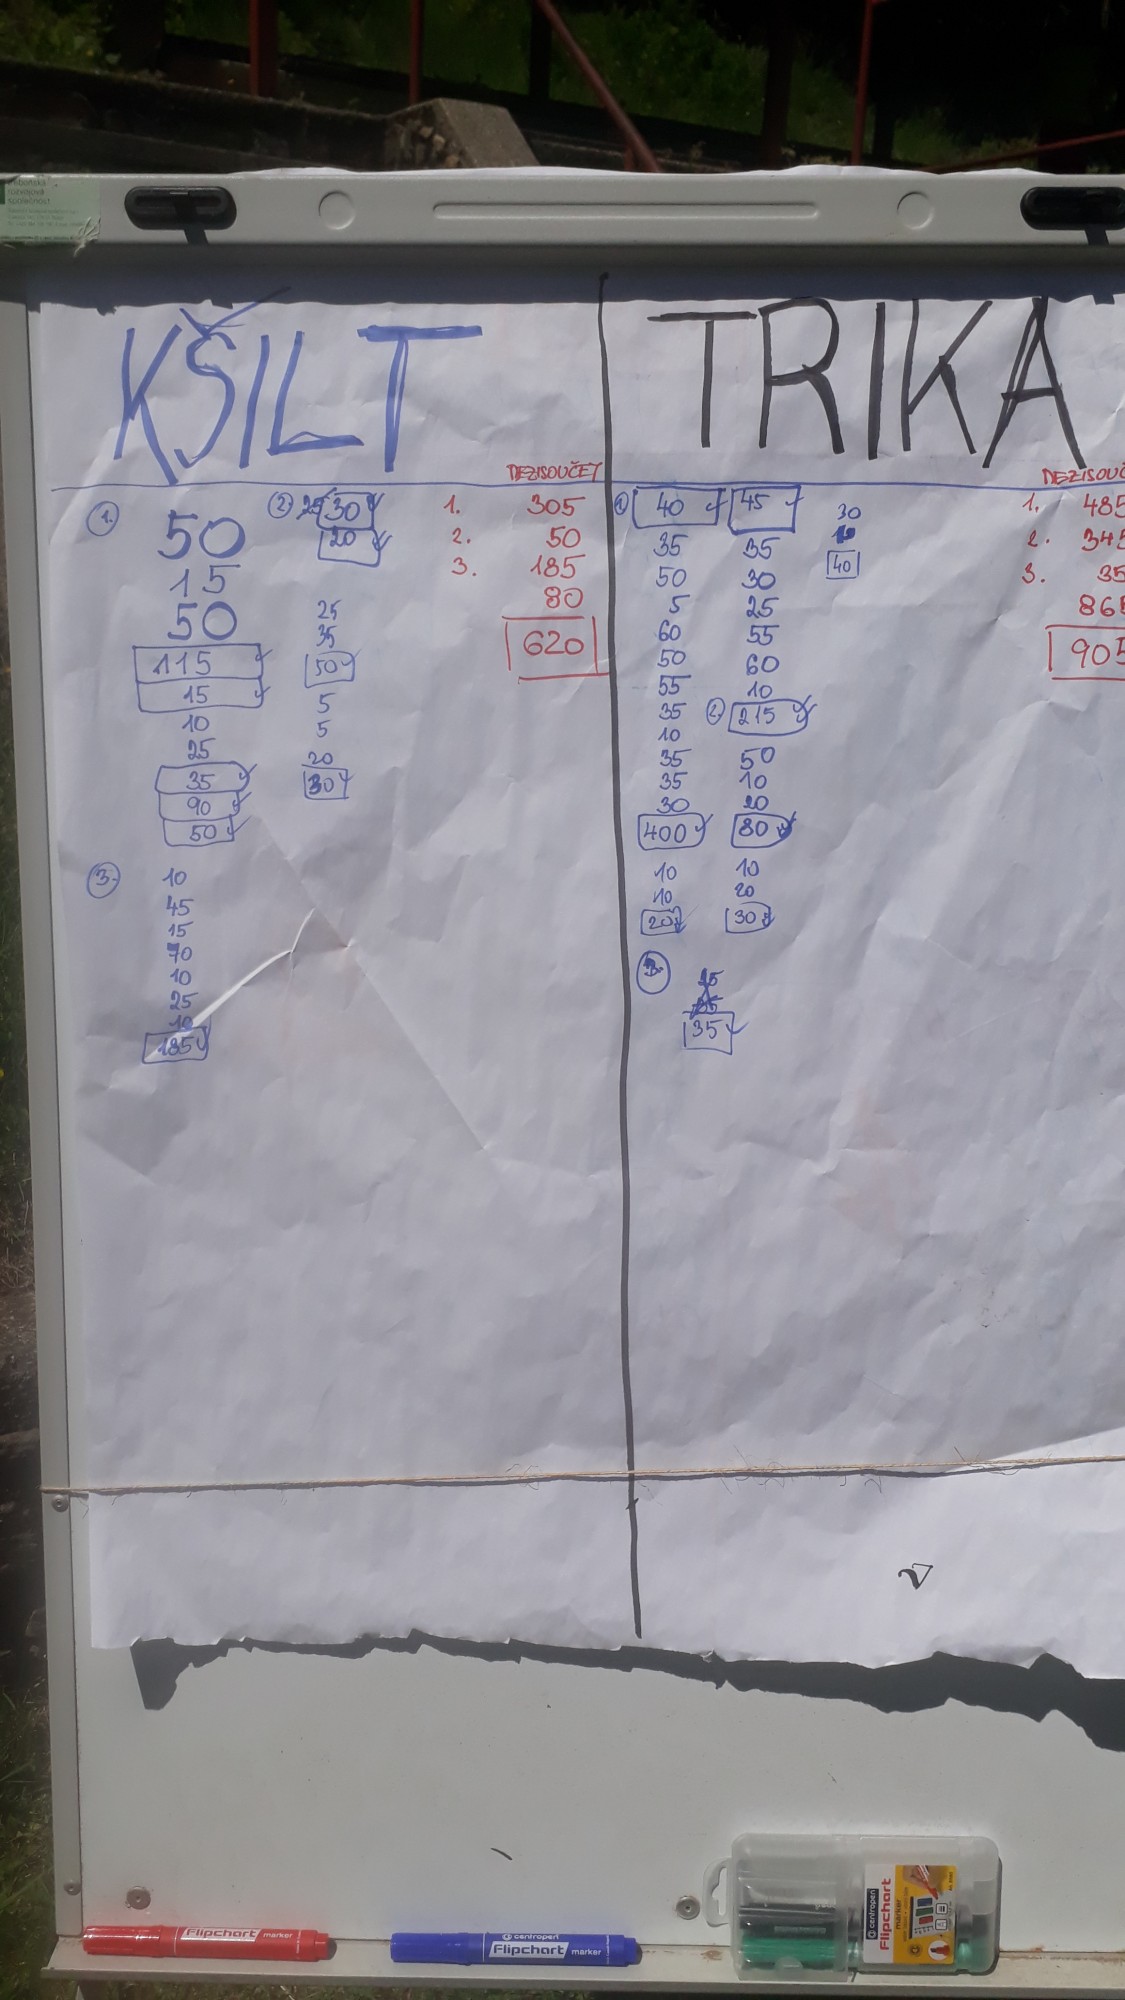 KŠILT
MEZISOUČET
1.
50
15
50
115
15
10
25
35
90
50
3.
10
45
15
70
10
25
10
185
2.
25 30
20
25
35
50
5
5
20
30
1. 305
2. 50
3. 185
80
620
TRIKA
MEZISOUČ
1.
40
35
50
5
60
50
55
35
10
35
35
30
400
10
10
20
45
35
30
25
55
60
10
2. 215
50
10
20
80
10
20
30
30
40
3.
35
1. 485
2. 345
3. 35
905
Flipchart marker
centropen
Flipchart marker
centropen
Flipchart
marker